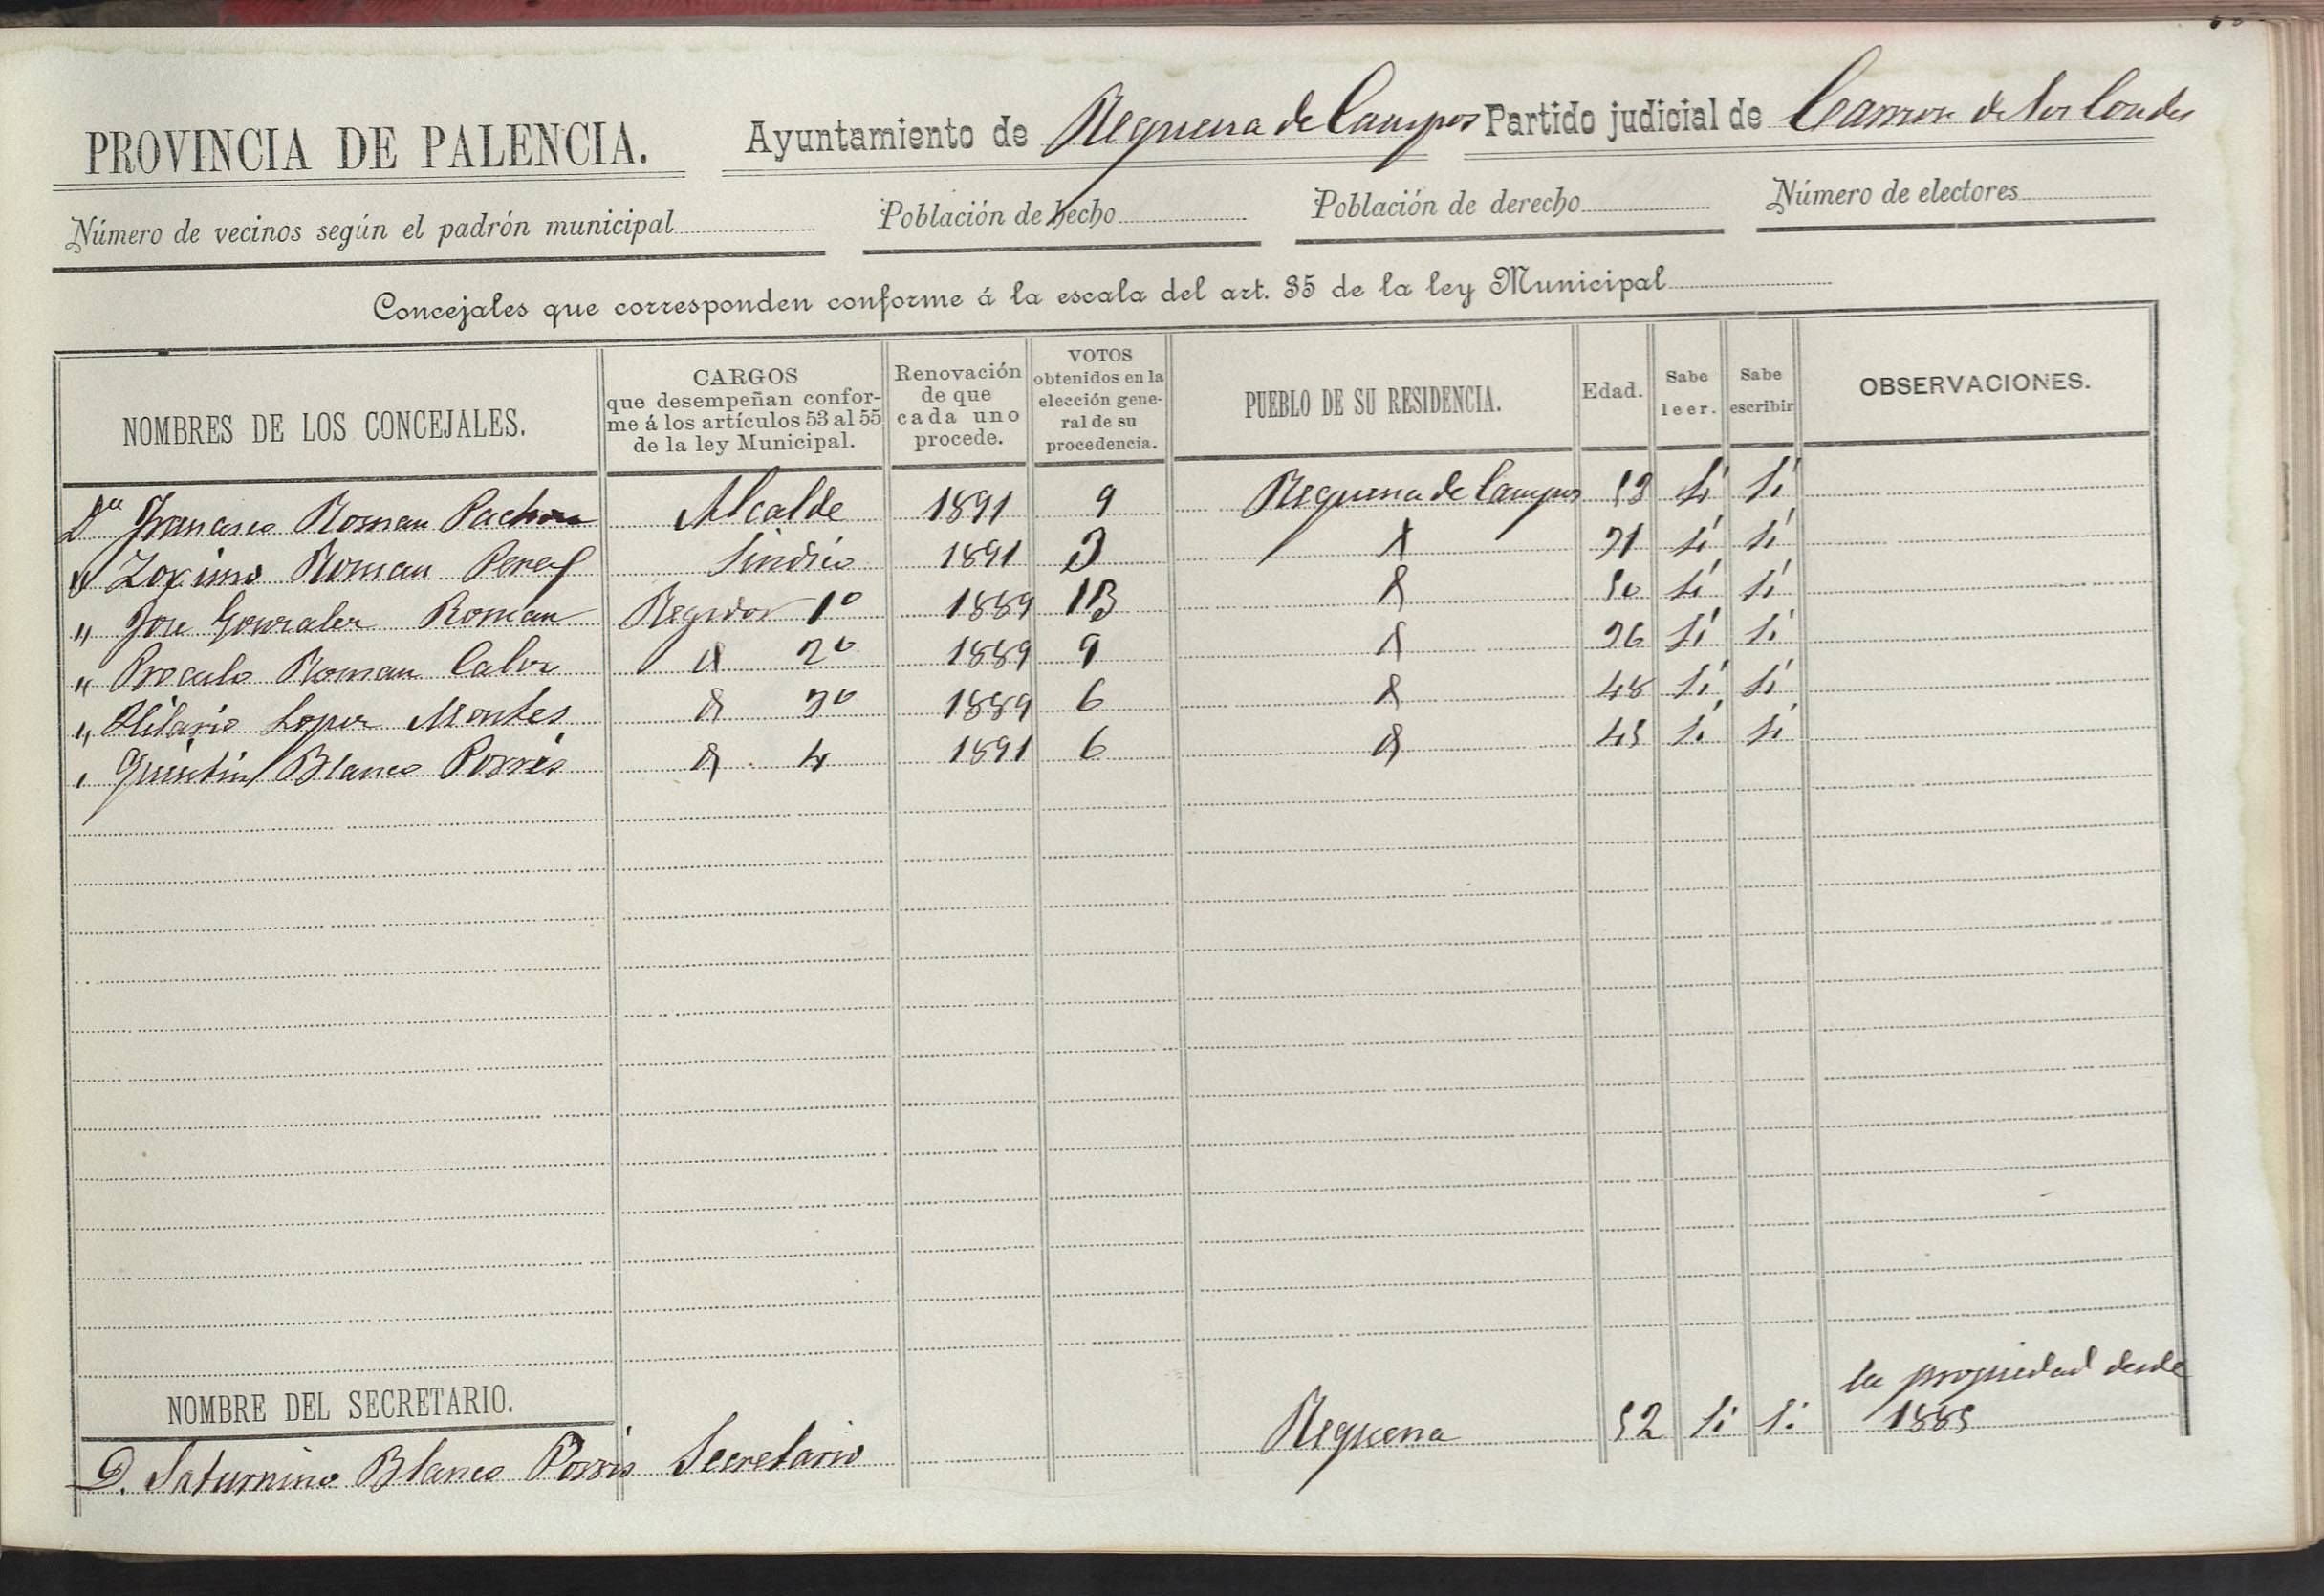 PROVINCIA DE PALENCIA. Ayuntamiento de Requena de Campos Partido judicial de Carrion de los Condes
Número de vecinos según el padrón municipal Población de hecho Población de derecho Número de electores
Concejales que corresponden conforme á la escala del art. 35 de la ley Municipal
NOMBRES DE LOS CONCEJALES. CARGOS que desempeñan conforme á los artículos 53 al 55 de la ley Municipal. Renovación de que cada uno procede. VOTOS obtenidos en la elección general de su procedencia. PUEBLO DE SU RESIDENCIA. Edad. Sabe leer. Sabe escribir OBSERVACIONES.
Dn Francisco Roman Pachon Alcalde 1891 9 Requena de Campos 53 Si Si
" Zoximo Roman Perez Sindico 1891 3 " 31 Si Si
" Jose Gonzalez Roman Regidor 1º 1889 13 " 50 Si Si
" Proculo Roman Calvo " 2º 1889 9 " 36 Si Si
" Hilario Lopez Montes " 3º 1889 6 " 48 Si Si
" Quintin Blanco Porris " 4 1891 6 " 45 Si Si
NOMBRE DEL SECRETARIO.
D. Saturnino Blanco Porris Secretario Requena 52 Si Si la propiedad desde 1885